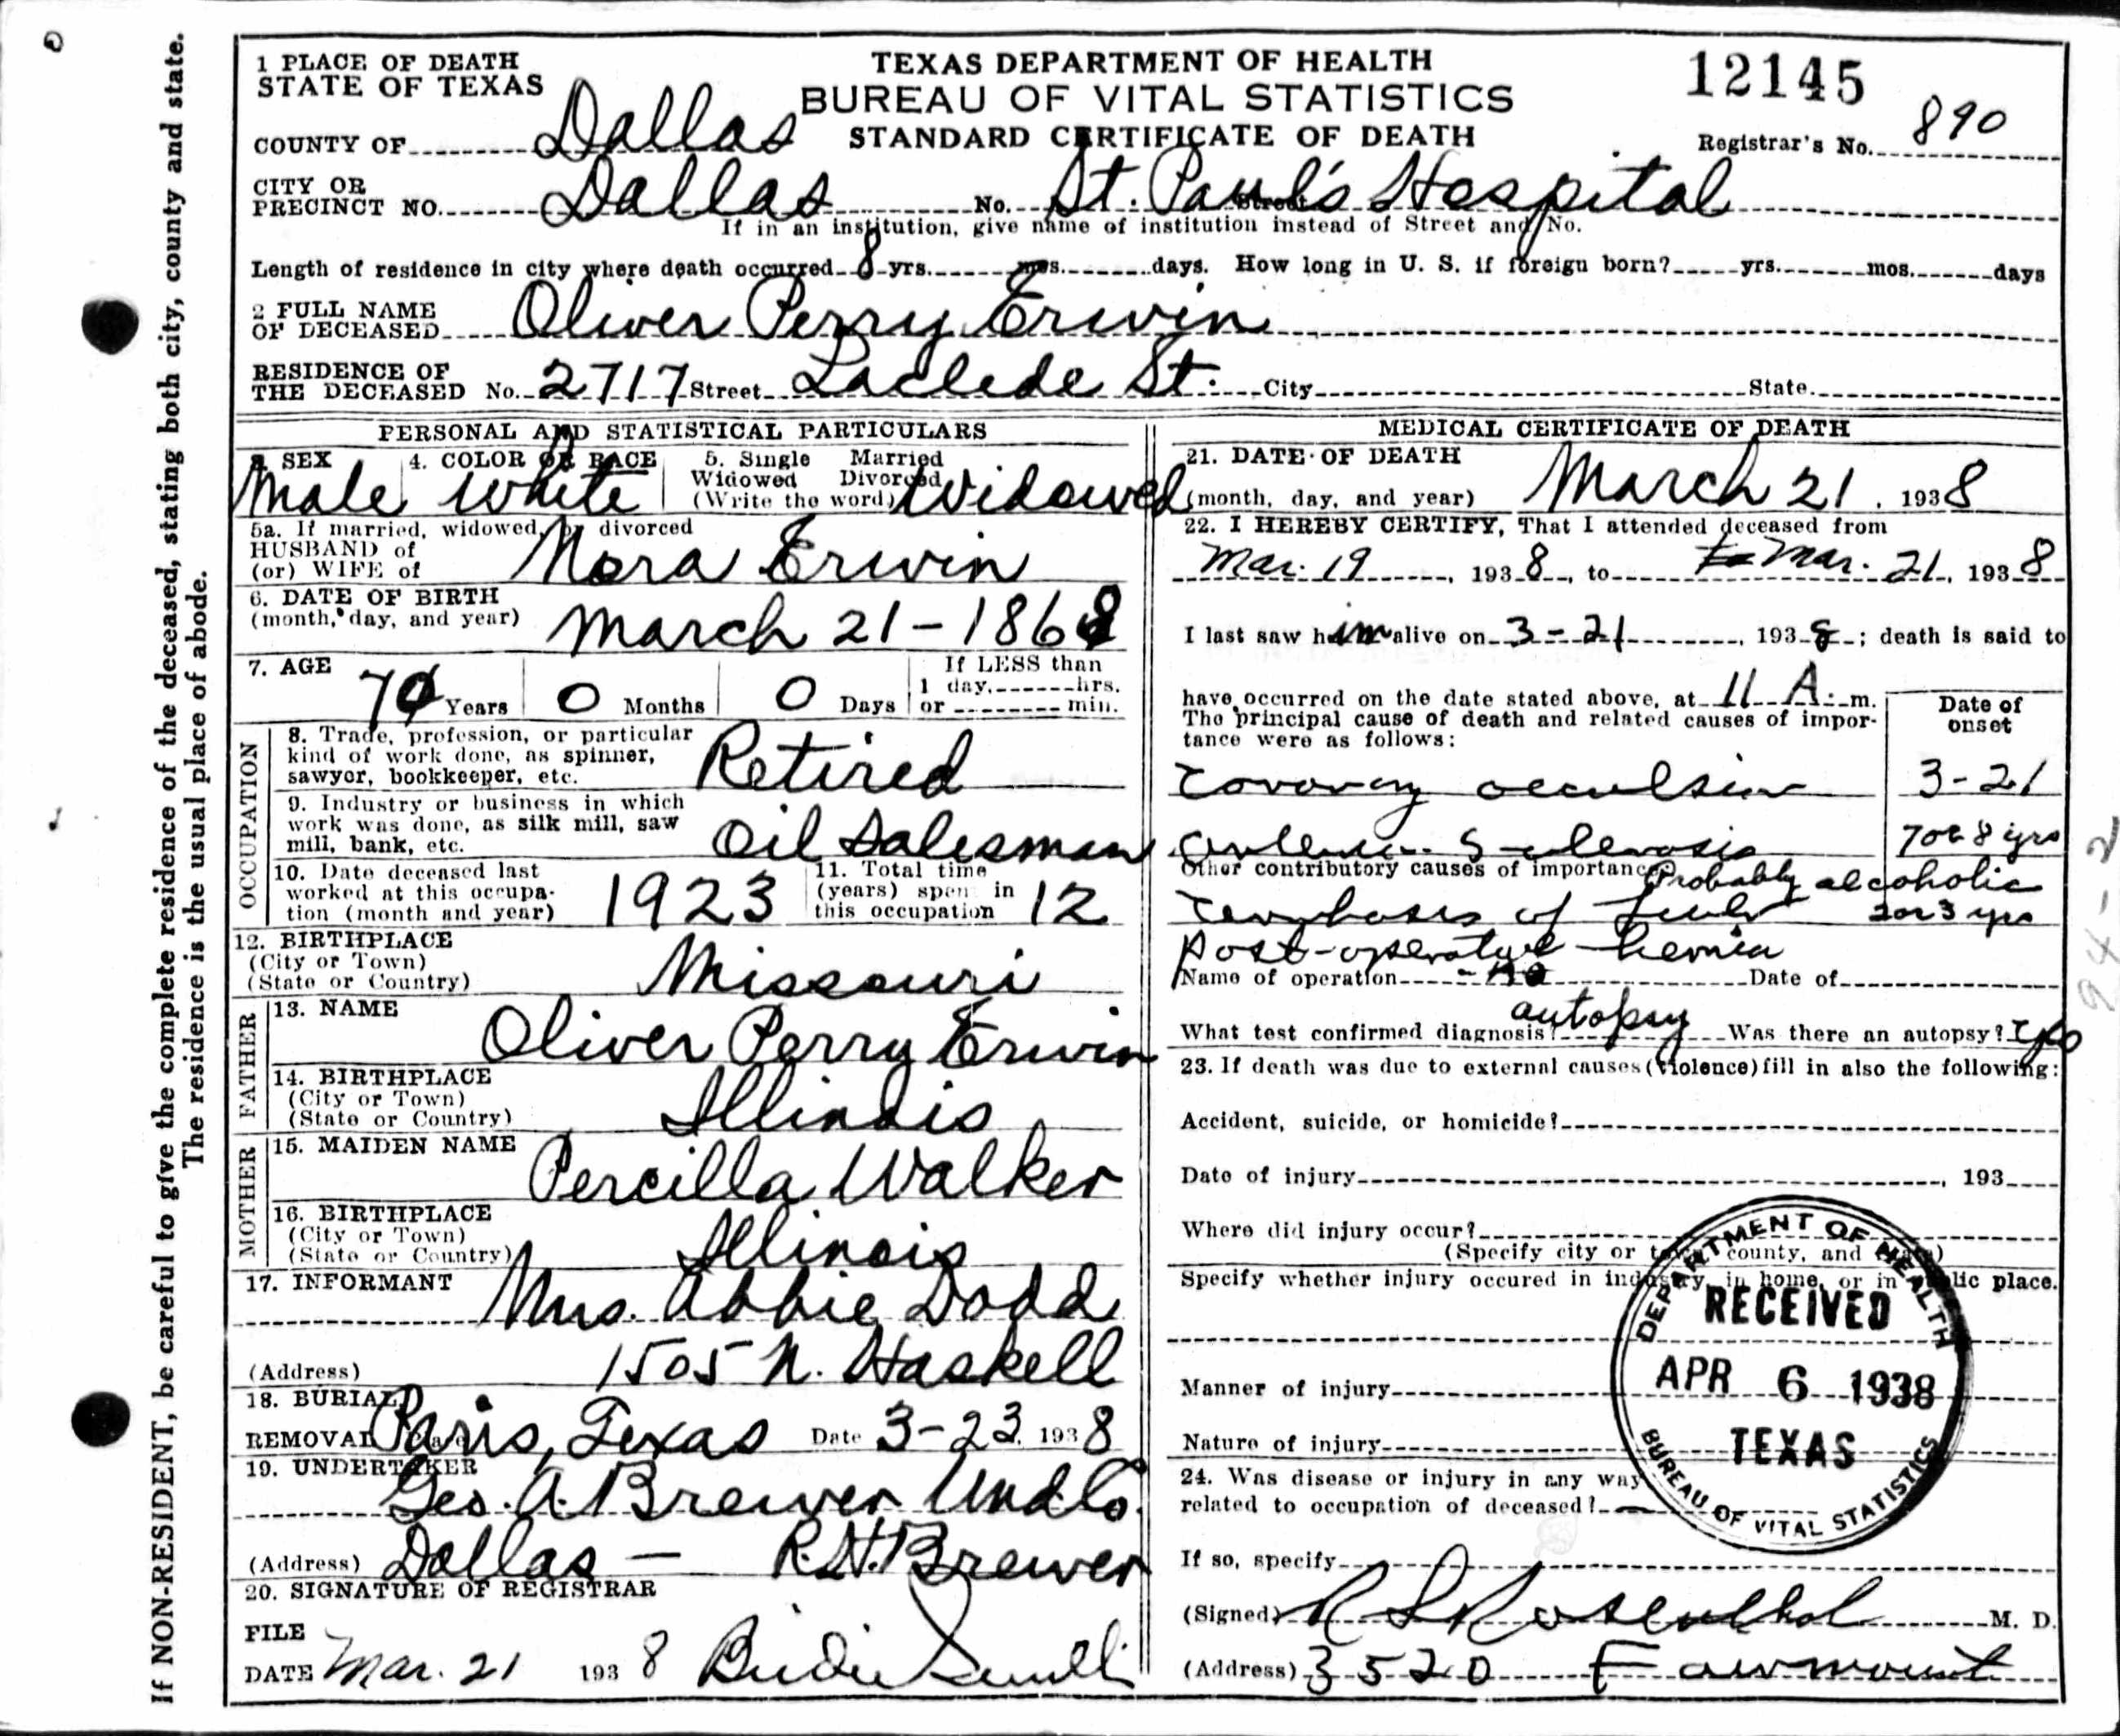 If NON-RESIDENT, be careful to give the complete residence of the deceased, stating both city, county and state.
The residence is the usual place of abode.
1 PLACE OF DEATH
STATE OF TEXAS
TEXAS DEPARTMENT OF HEALTH
BUREAU OF VITAL STATISTICS
STANDARD CERTIFICATE OF DEATH
12145
COUNTY OF Dallas
Registrar's No. 890
CITY OR
PRECINCT NO. Dallas No. St. Paul's Hospital Street
If in an institution, give name of institution instead of Street and No.
Length of residence in city where death occurred 8 yrs. mos. days. How long in U. S. if foreign born? yrs. mos. days
2 FULL NAME
OF DECEASED Oliver Perry Erwin
RESIDENCE OF
THE DECEASED No. 2717 Street Laclede St. City State
PERSONAL AND STATISTICAL PARTICULARS
3. SEX Male
4. COLOR OR RACE White
5. Single Married
Widowed Divorced
(Write the word) Widowed
5a. If married, widowed, or divorced
HUSBAND of
(or) WIFE of Nora Erwin
6. DATE OF BIRTH
(month, day, and year) March 21 - 1868
7. AGE
70 Years 0 Months 0 Days
If LESS than
1 day, hrs.
or min.
OCCUPATION
8. Trade, profession, or particular
kind of work done, as spinner,
sawyer, bookkeeper, etc. Retired
9. Industry or business in which
work was done, as silk mill, saw
mill, bank, etc. Oil Salesman
10. Date deceased last
worked at this occupa-
tion (month and year) 1923
11. Total time
(years) spent in
this occupation 12
12. BIRTHPLACE
(City or Town)
(State or Country) Missouri
FATHER
13. NAME
Oliver Perry Erwin
14. BIRTHPLACE
(City or Town)
(State or Country) Illinois
MOTHER
15. MAIDEN NAME
Percilla Walker
16. BIRTHPLACE
(City or Town)
(State or Country) Illinois
17. INFORMANT
Mrs. Abbie Dodd
(Address) 1505 N. Haskell
18. BURIAL
REMOVAL Paris, Texas Date 3-23, 1938
19. UNDERTAKER
Geo. A. Brewer Und. Co.
(Address) Dallas — R.H. Brewer
20. SIGNATURE OF REGISTRAR
FILE
DATE Mar. 21 1938
MEDICAL CERTIFICATE OF DEATH
21. DATE OF DEATH
(month, day, and year) March 21, 1938
22. I HEREBY CERTIFY, That I attended deceased from
Mar. 19, 1938, to Mar. 21, 1938
I last saw him alive on 3-21, 1938; death is said to
have occurred on the date stated above, at 11 A. m.
The principal cause of death and related causes of impor-
tance were as follows:
Date of
onset
Coronary occulsion 3-21
Sclerosis 7 or 8 yrs
Other contributory causes of importance Probably alcoholic
of liver 2 or 3 yrs
post-operative hernia
Name of operation - no Date of
What test confirmed diagnosis? autopsy Was there an autopsy? yes
23. If death was due to external causes (violence) fill in also the following:
Accident, suicide, or homicide?
Date of injury , 193
Where did injury occur?
(Specify city or town, county, and state)
Specify whether injury occured in industry, in home, or in public place.
Manner of injury
Nature of injury
24. Was disease or injury in any way
related to occupation of deceased? —
If so, specify
(Signed) R L Rosenthal M. D.
(Address) 3520 Fairmount
DEPARTMENT OF HEALTH
RECEIVED
APR 6 1938
TEXAS
BUREAU OF VITAL STATISTICS
94-2